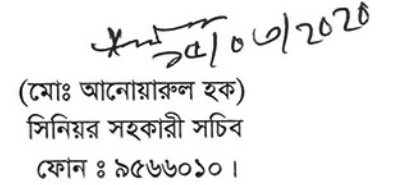 ১৫/০৩/2020
(মোঃ আনোয়ারুল হক)
সিনিয়র সহকারী সচিব
ফোন ঃ ৯৫৬৬০১০।